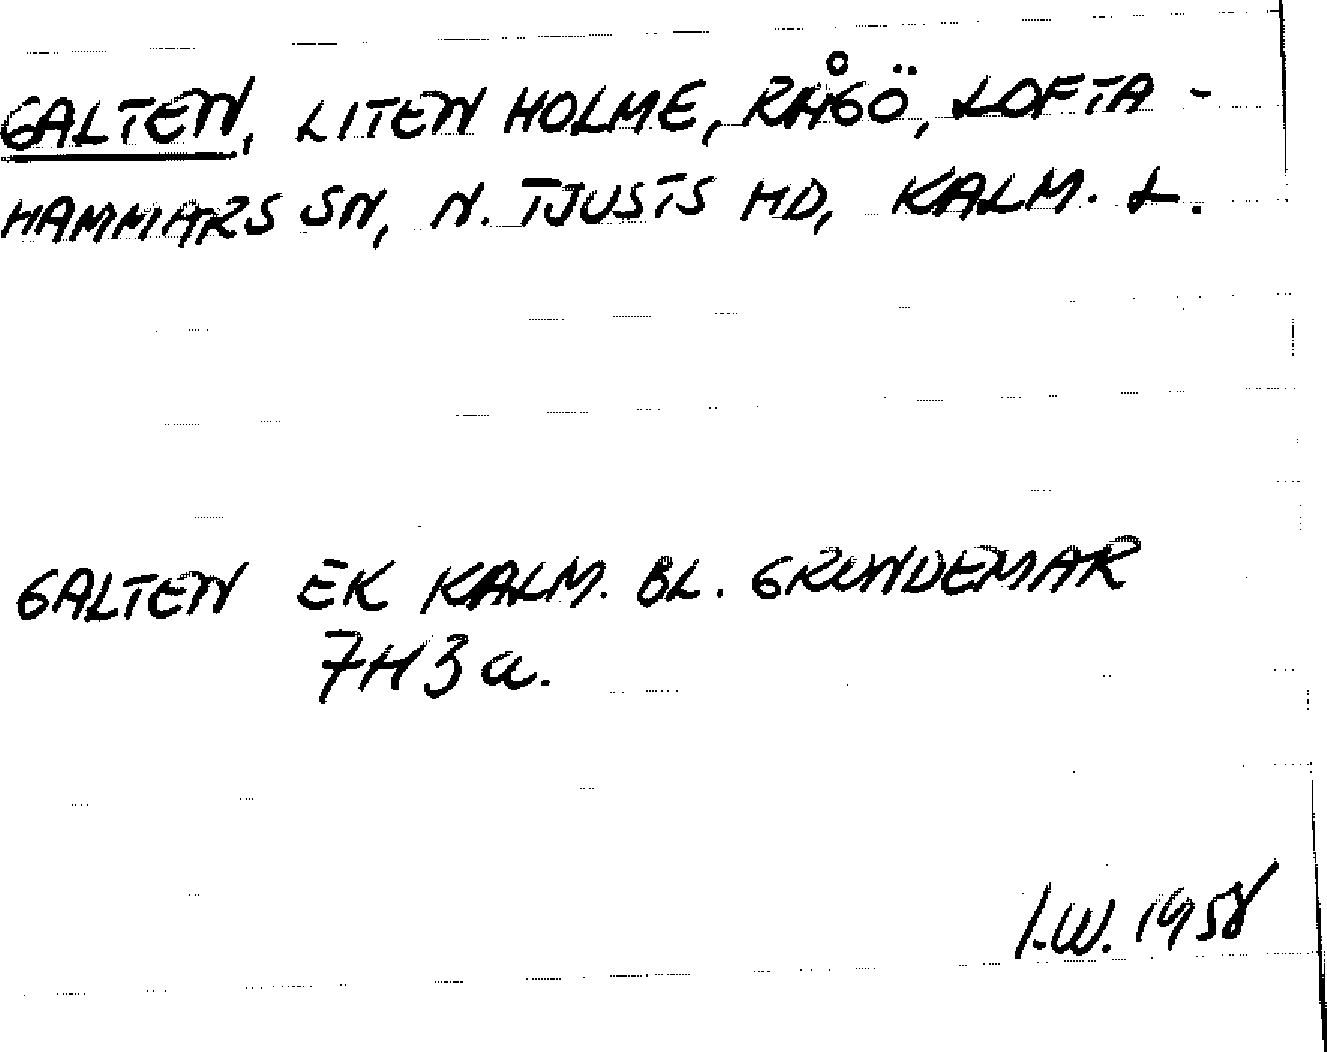 GALTEN, LITEN HOLME, RÅGÖ, LOFTA-
HAMMARS SN, N. TJUSTS HD, KALM. L.
GALTEN EK KALM. BL. GRUNDEMAR
7H3a.
I.W. 1958